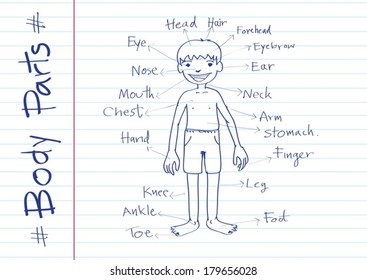 # Body Parts #
Head
Hair
Forehead
Eyebrow
Eye
Ear
Nose
Mouth
Neck
Chest
Arm
Stomach.
Hand
Finger
Knee
Leg
Ankle
Foot
Toe
shutterstock.com · 179656028